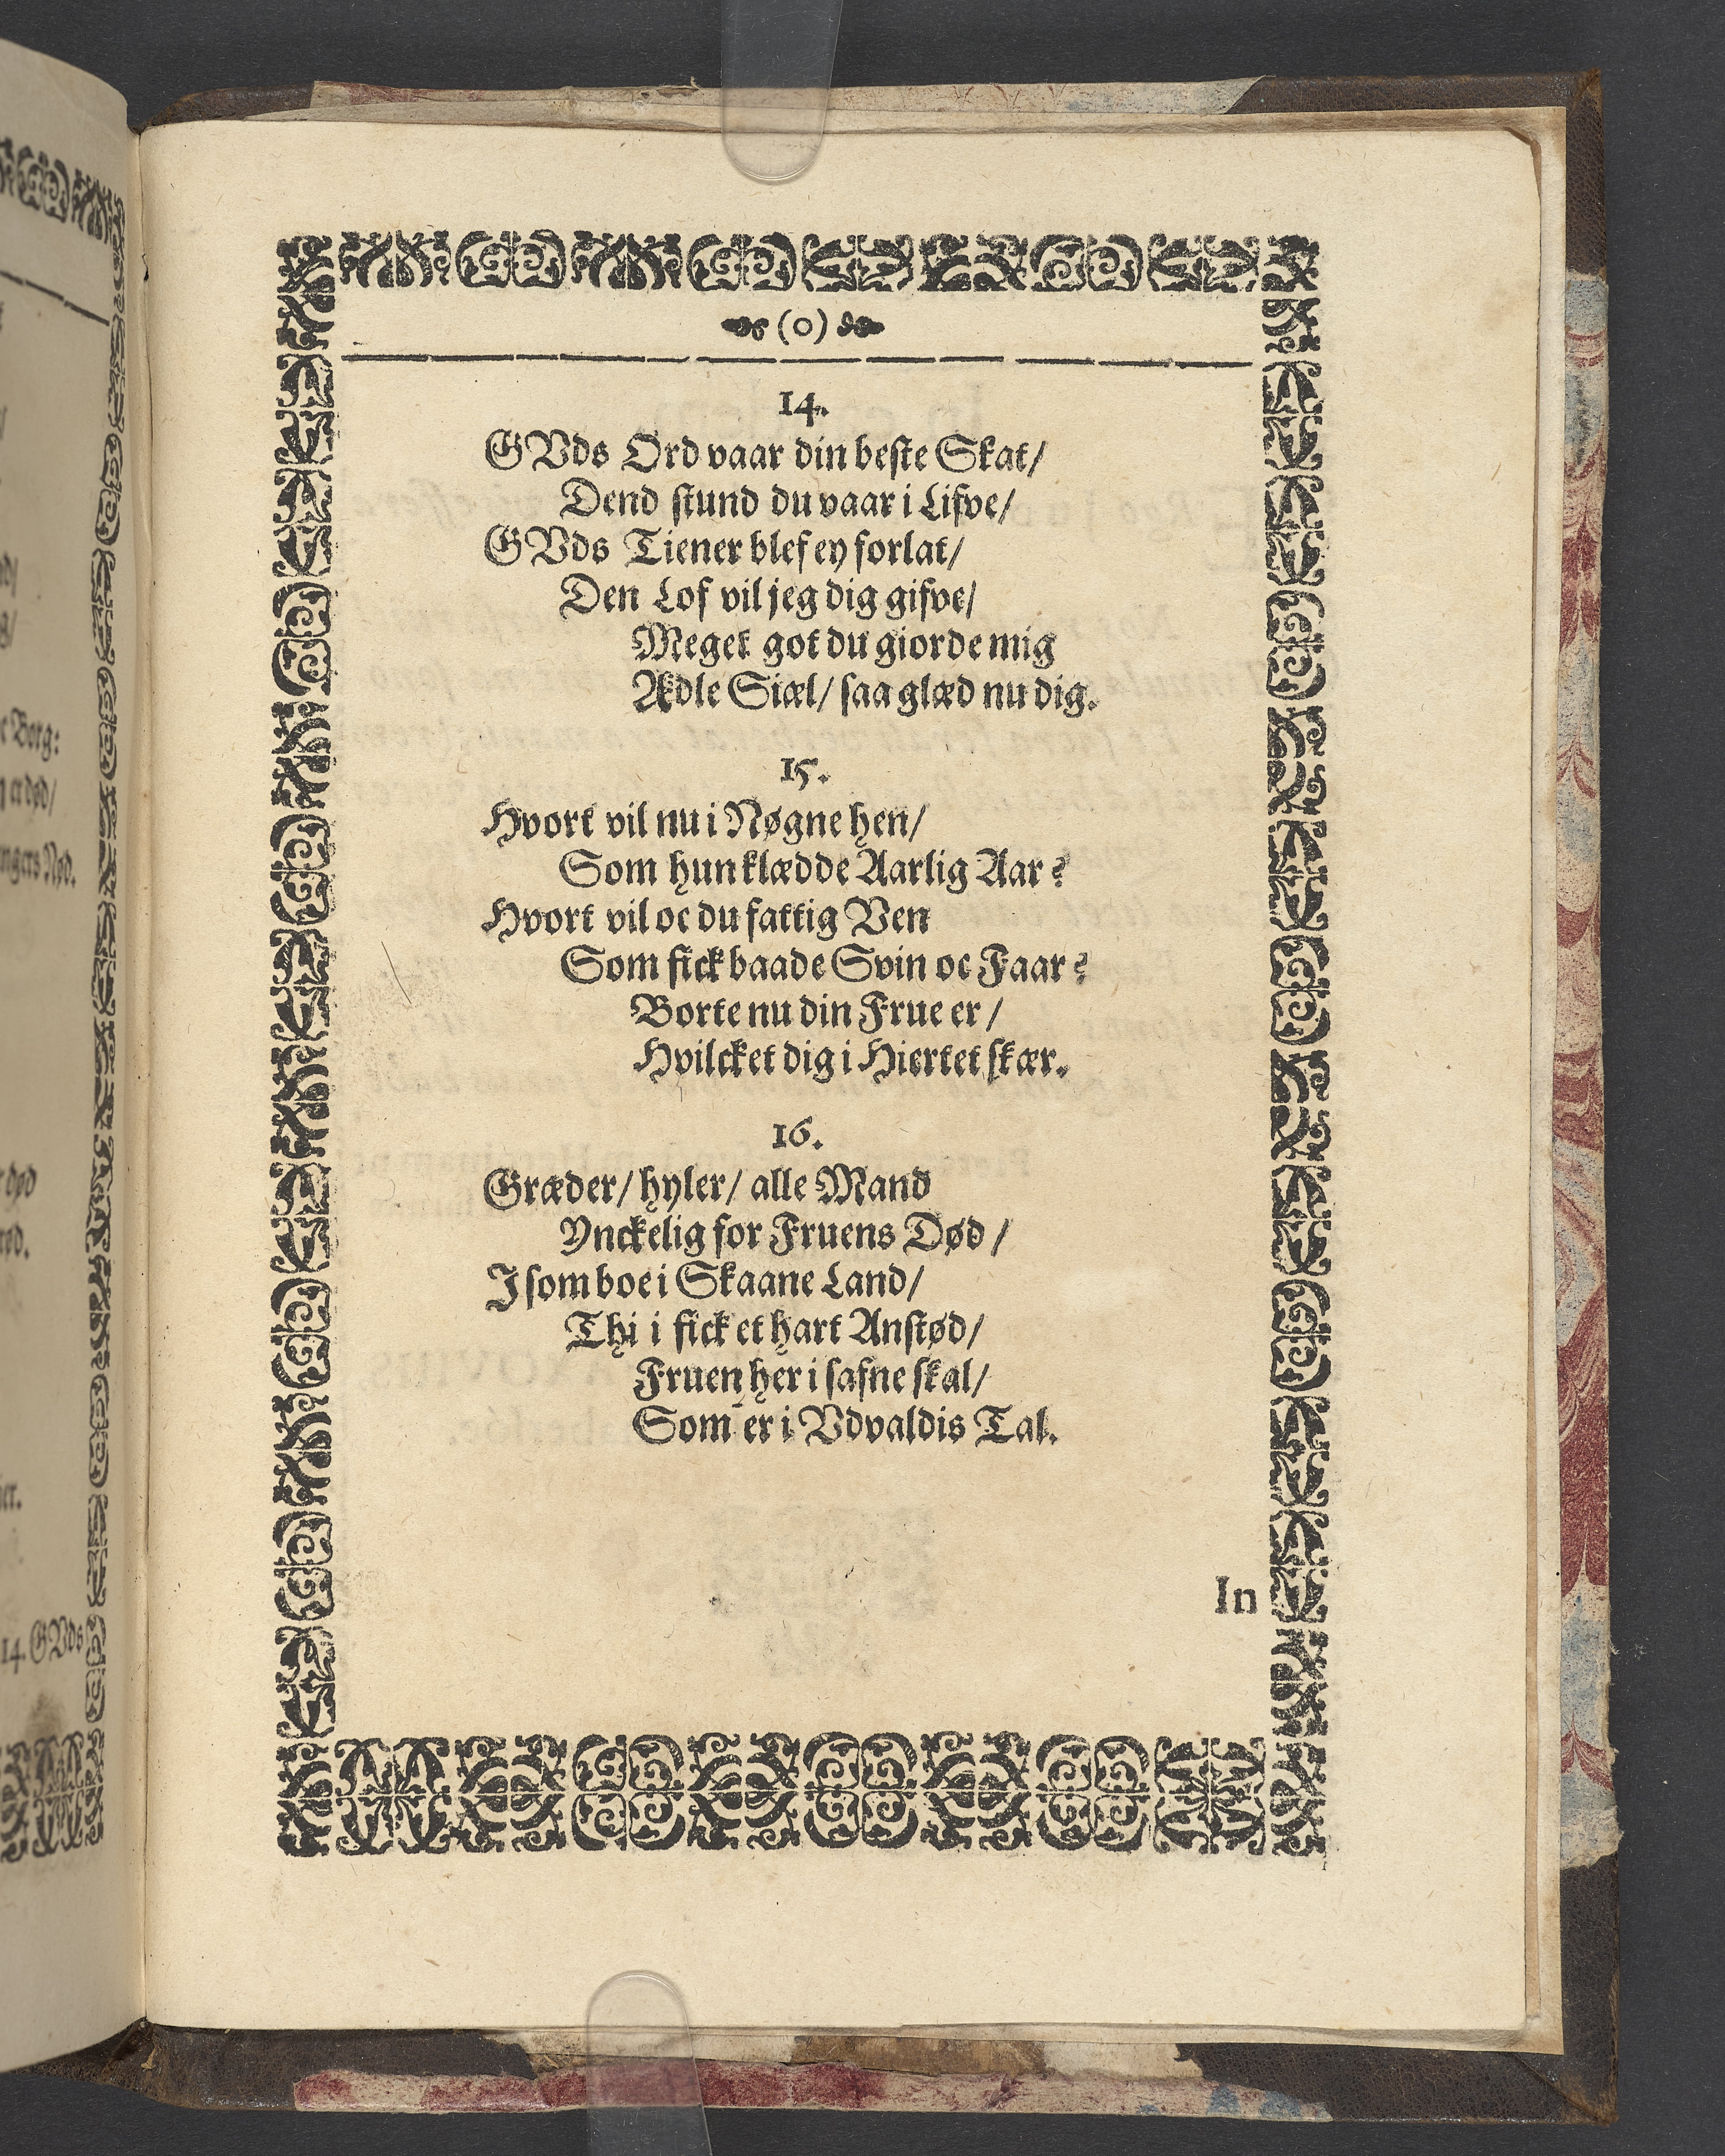 (0)
14.
GVds Ord vaar din beste Skat/
Dend stund du vaar i Lifve/
GVds Tiener blef ey forlat/
Den Lof vil jeg dig gifve/
Meget got du giorde mig
Ædle Siæl/ saa glæd nu dig.
15.
Hvort vil nu i Nøgne hen/
Som hun klædde Aarlig Aar?
Hvort vil oc du fattig Ven
Som fick baade Svin oc Faar?
Borte nu din Frue er/
Hvilcket dig i Hiertet skær.
16.
Græder/ hyler/ alle Mand
Ynckelig for Fruens Død/
I som boe i Skaane Land/
Thi i fick et hart Anstød/
Fruen her i safne skal/
Som er i Vdvaldis Tal.
In
e Berg:
er død/
ngers Nød.
død
14. GVds